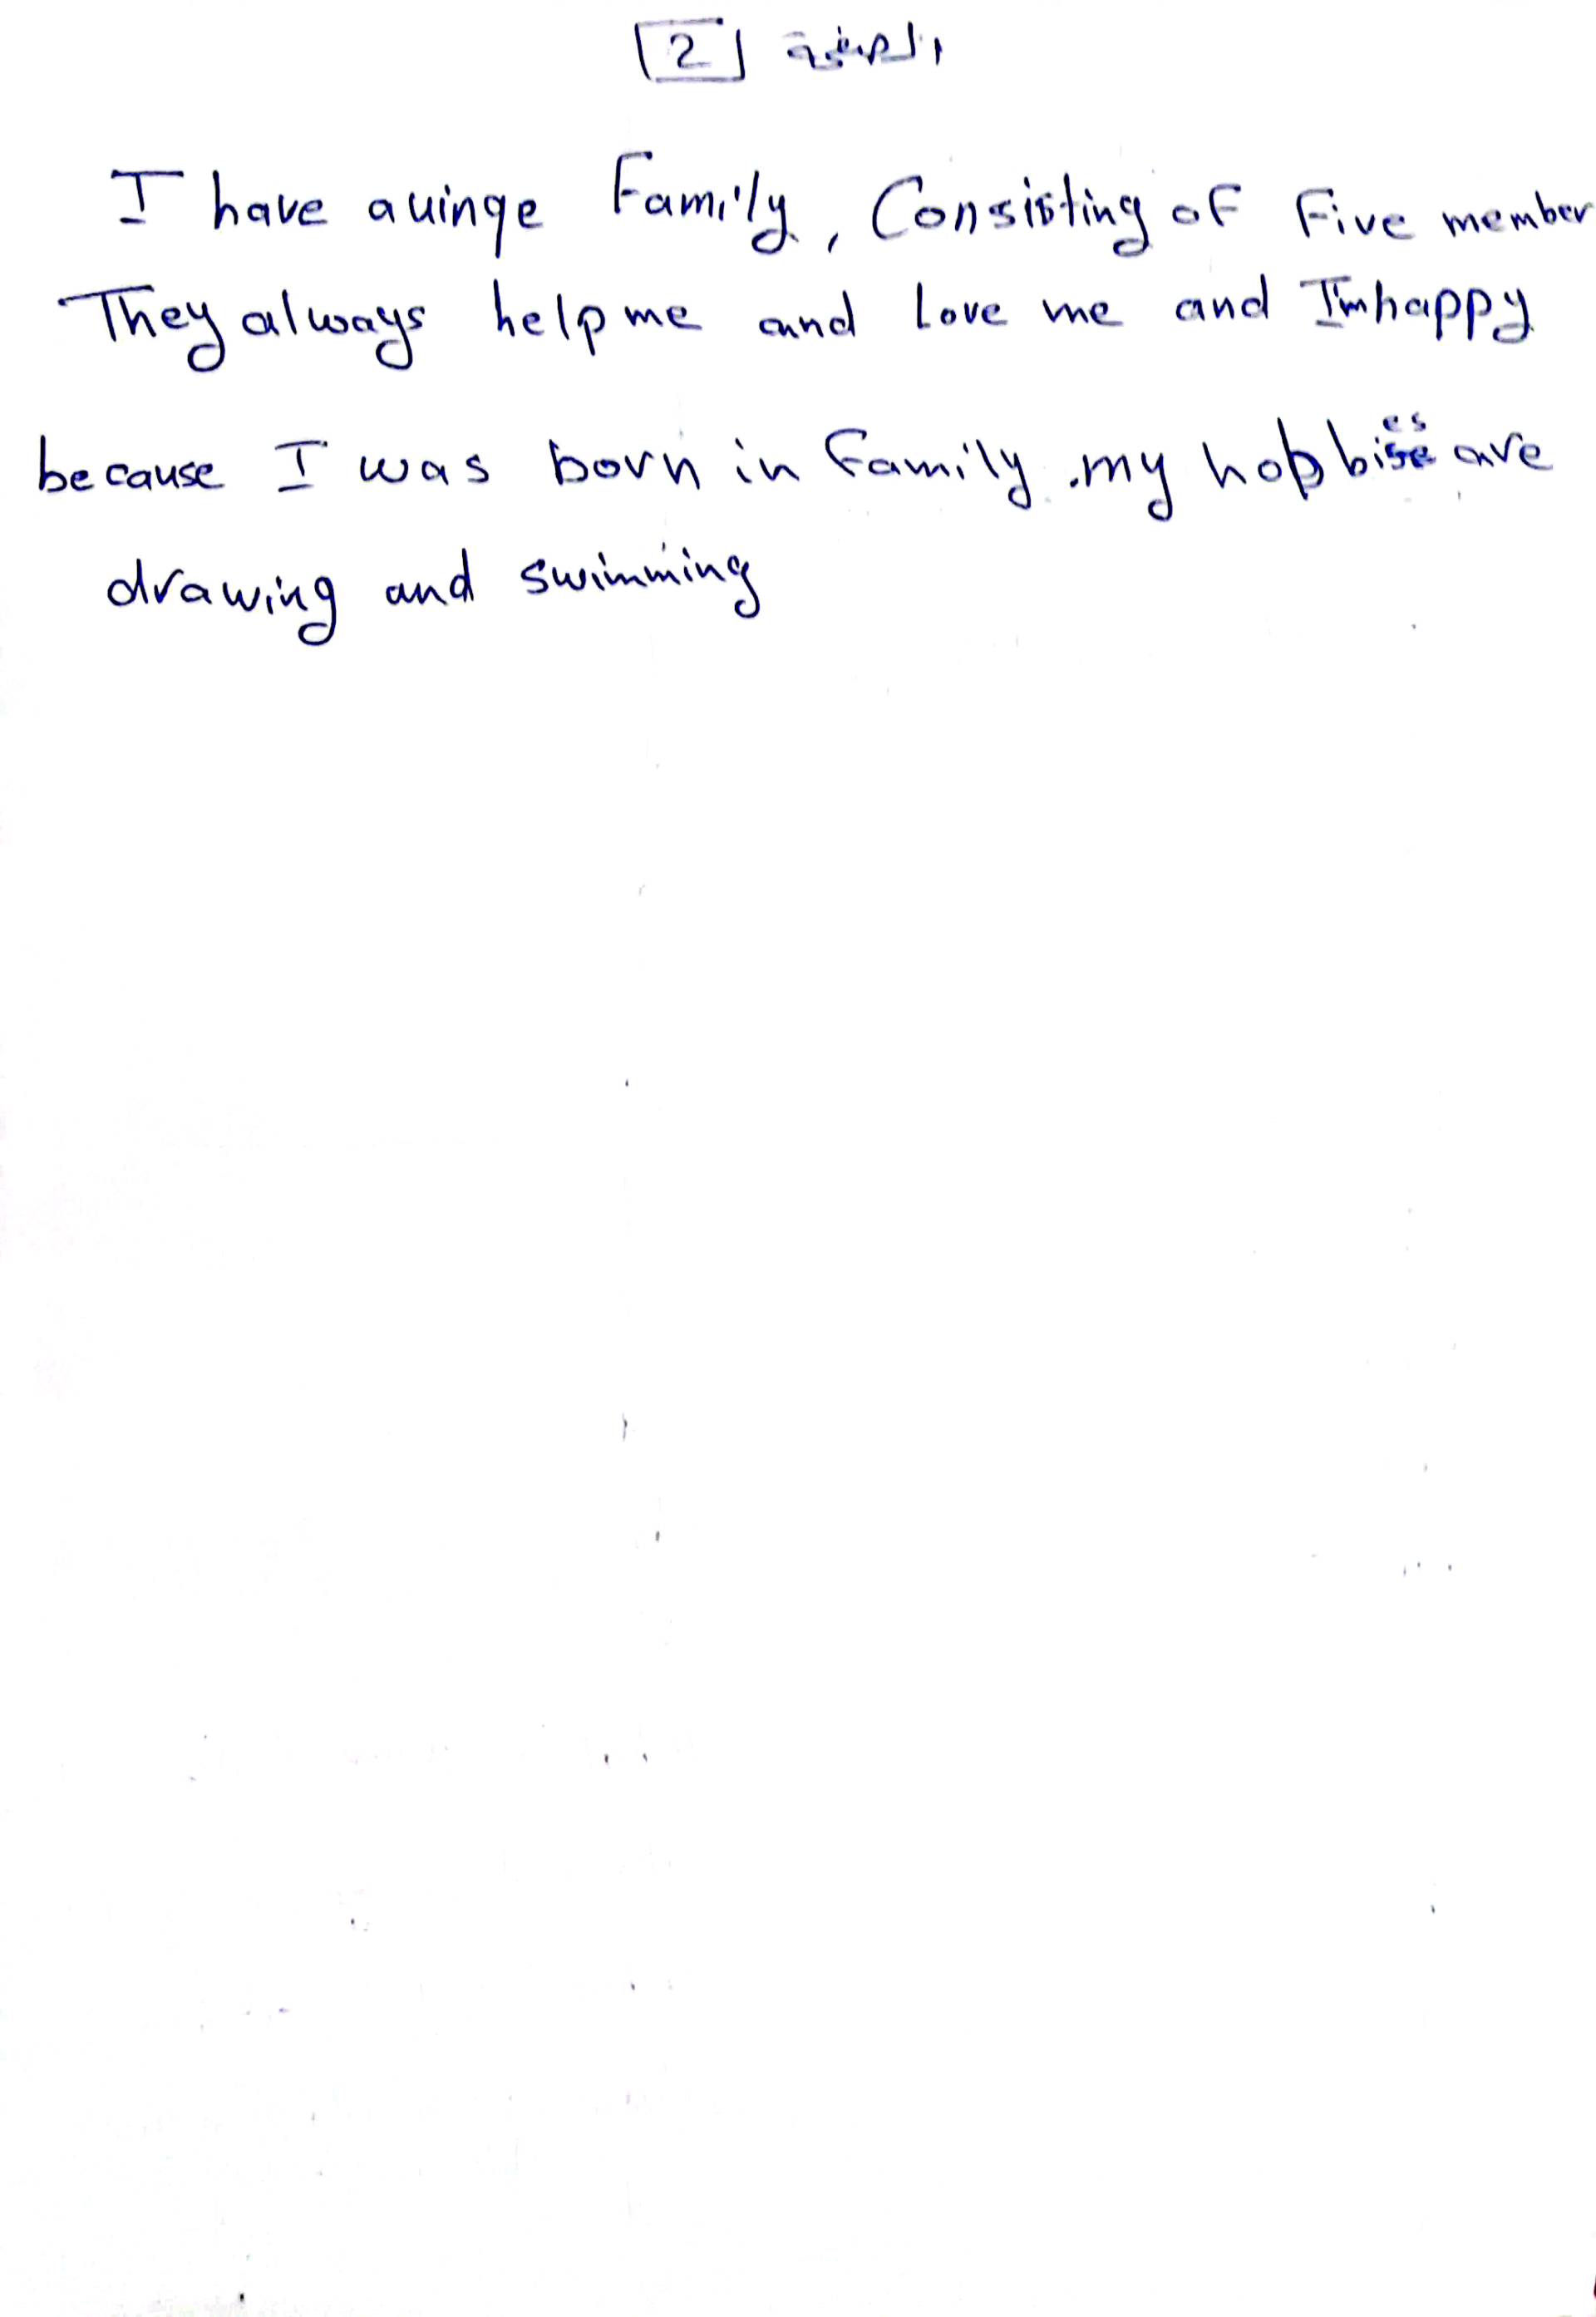 العينة 2
I have a uinqe Family, Consisting of Five member
They always help me and Love me and I'm happy
because I was born in Family. my hobbies are
drawing and swimming